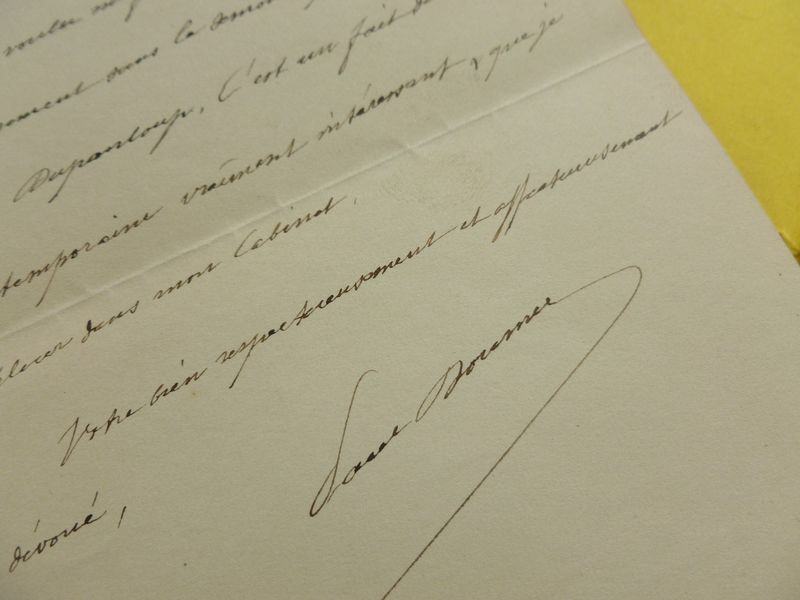 vouloir
dans le
Dupanloup. C'est un fait de
temporaine vraiment intéressant, que je
placer dans mon Cabinet.
Votre bien respectueusement et affectueusement
dévoué,
Paul Doumer